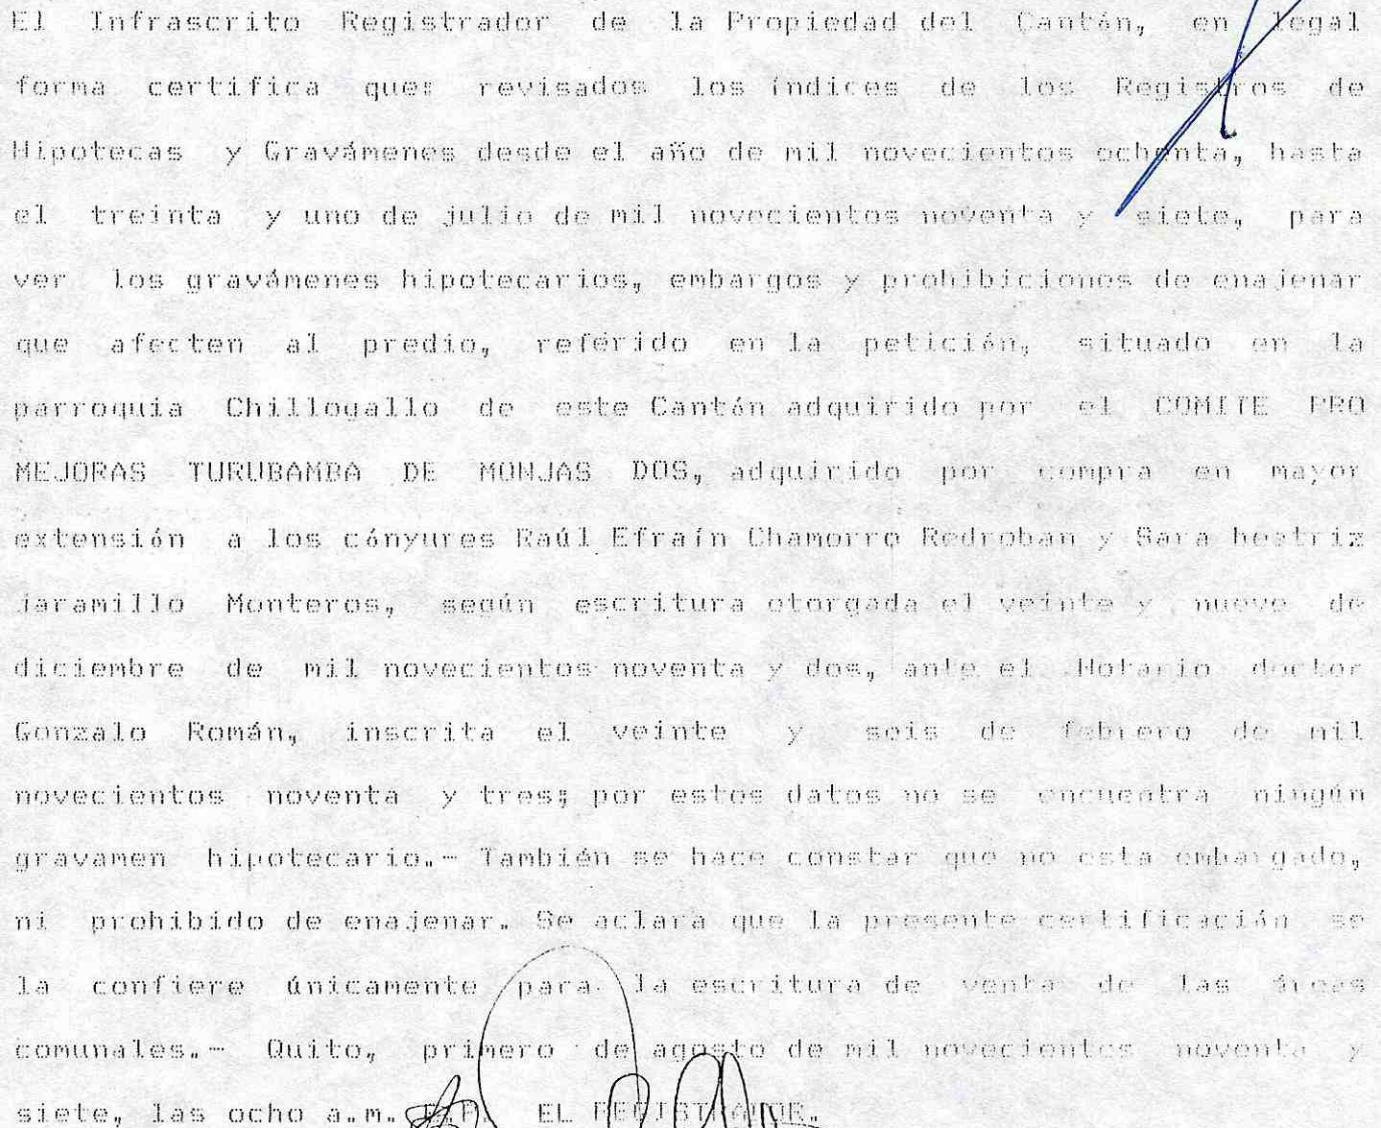 El Infrascrito Registrador de la Propiedad del Cantón, en legal
forma certifica que: revisados los índices de los Registros de
Hipotecas y Gravámenes desde el año de mil novecientos ochenta, hasta
el treinta y uno de julio de mil novecientos noventa y siete, para
ver los gravámenes hipotecarios, embargos y prohibiciones de enajenar
que afecten al predio, referido en la petición, situado en la
parroquia Chillogallo de este Cantón adquirido por el COMITE PRO
MEJORAS TURUBAMBA DE MONJAS DOS, adquirido por compra en mayor
extensión a los cónyures Raúl Efraín Chamorro Redroban y Sara beatriz
Jaramillo Monteros, según escritura otorgada el veinte y nueve de
diciembre de mil novecientos noventa y dos, ante el Notario doctor
Gonzalo Román, inscrita el veinte y seis de febrero de mil
novecientos noventa y tres; por estos datos no se encuentra ningún
gravamen hipotecario.- También se hace constar que no esta embargado,
ni prohibido de enajenar. Se aclara que la presente certificación se
la confiere únicamente para la escritura de venta de las áreas
comunales.- Quito, primero de agosto de mil novecientos noventa y
siete, las ocho a.m. EL REGISTRADOR.